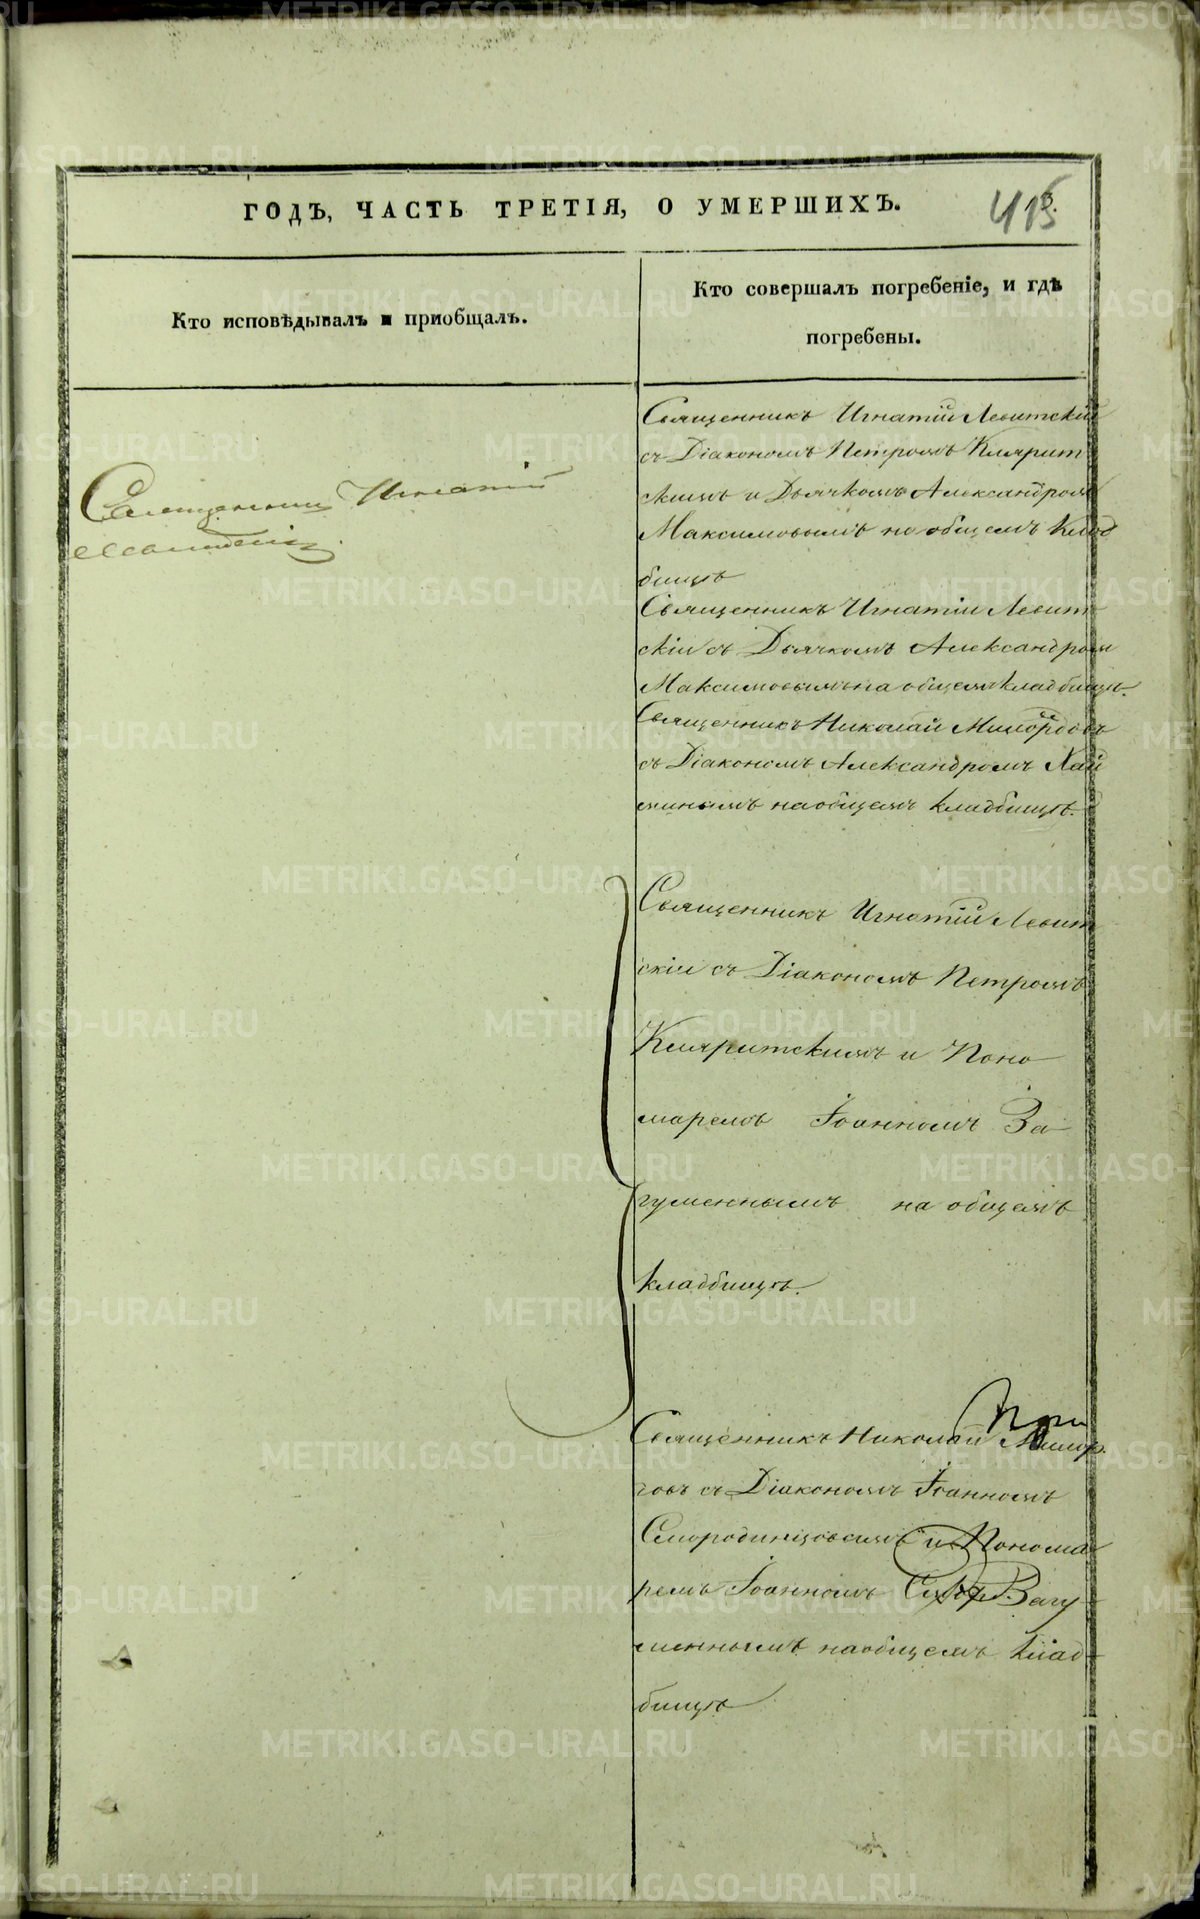 ГОДЪ, ЧАСТЬ ТРЕТІЯ, О УМЕРШИХЪ.
415
Кто исповѣдывалъ и приобщалъ.
Кто совершалъ погребеніе, и гдѣ
погребены.
Священникъ Игнатій
Левитскій
Священникъ Игнатій Левитскій
съ Діакономъ Петромъ Клярит
скимъ и Дьячкомъ Александромъ
Максимовымъ на общемъ клад
бищѣ
Священникъ Игнатій Левит
скій съ Дьячкомъ Александромъ
Максимовымъ на общемъ кладбищѣ.
Священникъ Николай
съ Діакономъ Александромъ
на общемъ кладбищѣ.
Священникъ Игнатій Левит
скій съ Діакономъ Петромъ
Кляритскимъ и Поно
маремъ Іоанномъ За
гуменнымъ на общемъ
кладбищѣ.
Священникъ Николай
съ Діакономъ Іоанномъ
Смородинцовымъ и Понома
ремъ Іоанномъ Загу
меннымъ на общемъ клад
бищѣ
METRIKI.GASO-URAL.RU